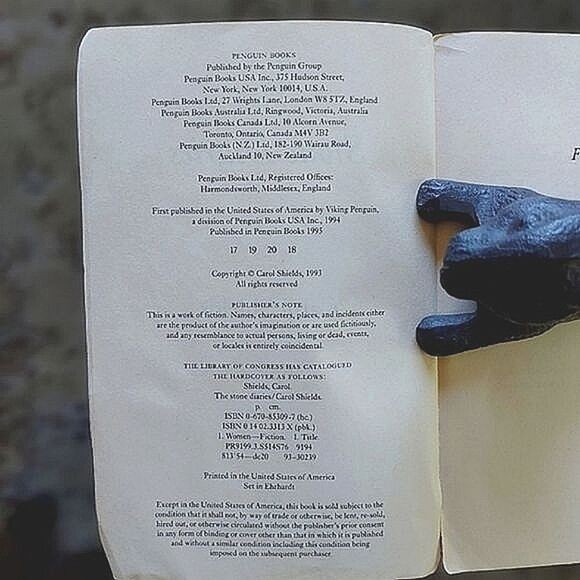 PENGUIN BOOKS
Published by the Penguin Group
Penguin Books USA Inc., 375 Hudson Street,
New York, New York 10014, U.S.A.
Penguin Books Ltd, 27 Wrights Lane, London W8 5TZ, England
Penguin Books Australia Ltd, Ringwood, Victoria, Australia
Penguin Books Canada Ltd, 10 Alcorn Avenue,
Toronto, Ontario, Canada M4V 3B2
Penguin Books (N.Z.) Ltd, 182-190 Wairau Road,
Auckland 10, New Zealand
Penguin Books Ltd, Registered Offices:
Harmondsworth, Middlesex, England
First published in the United States of America by Viking Penguin,
a division of Penguin Books USA Inc., 1994
Published in Penguin Books 1995
17 19 20 18
Copyright © Carol Shields, 1993
All rights reserved
PUBLISHER'S NOTE
This is a work of fiction. Names, characters, places, and incidents either
are the product of the author's imagination or are used fictitiously,
and any resemblance to actual persons, living or dead, events,
or locales is entirely coincidental.
THE LIBRARY OF CONGRESS HAS CATALOGUED
THE HARDCOVER AS FOLLOWS:
Shields, Carol.
The stone diaries/Carol Shields.
p. cm.
ISBN 0-670-85309-7 (hc.)
ISBN 0 14 02.3313 X (pbk.)
1. Women—Fiction. I. Title.
PR9199.3.S514S76 9194
813'54—dc20 93-30239
Printed in the United States of America
Set in Ehrhardt
Except in the United States of America, this book is sold subject to the
condition that it shall not, by way of trade or otherwise, be lent, re-sold,
hired out, or otherwise circulated without the publisher's prior consent
in any form of binding or cover other than that in which it is published
and without a similar condition including this condition being
imposed on the subsequent purchaser.
F